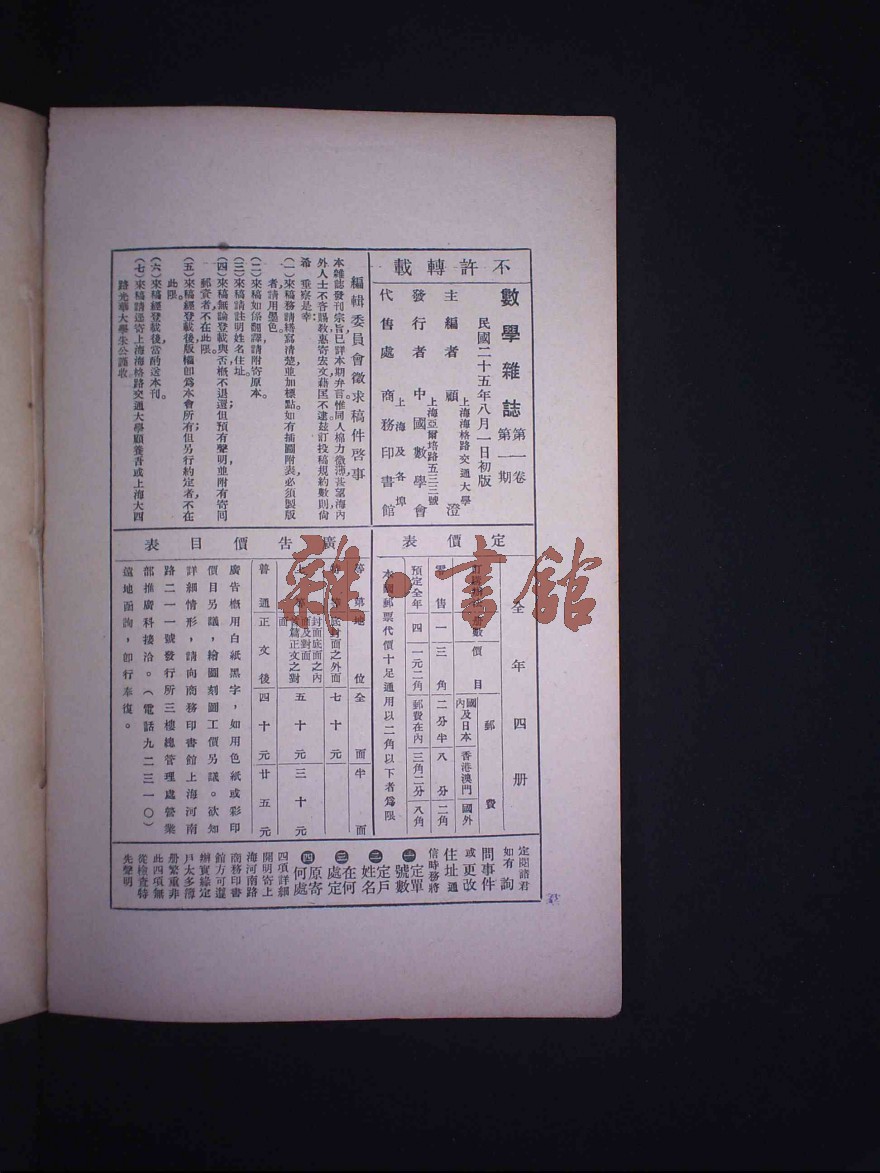 不許轉載
數學雜誌 第一卷 第一期
民國二十五年八月一日初版
上海海格路交通大學
主編者 顧澄
上海亞爾培路五三三號
發行者 中國數學會
上海及各埠
代售處 商務印書館
編輯委員會徵求稿件啓事
本雜誌發刊宗旨已詳本期弁言。惟同人棉力微薄,甚望海內
外人士不吝賜敎,惠寄宏文,藉匡不逮。茲訂投稿規約數則,尙
希 垂察是幸:
(一)來稿務請繕寫清楚,並加標點。如有插圖附表,必須製版
者,請用墨色。
(二)來稿如係翻譯,請附寄原本。
(三)來稿請註明姓名住址。
(四)來稿無論登載與否,槪不退還;但預有聲明,並附有寄回
郵資者,不在此限。
(五)來稿經登載後,版權卽爲本會所有;但另行約定者,不在
此限。
(六)來稿經登載後,當酌送本刊。
(七)來稿請逕寄上海海格路交通大學顧養吾或上海大西
路光華大學朱公謹收
定價表
全年四册
册數 價目 郵費
國及日本內 香港澳門 國外
零售 一 三角 二分半 八分 二角
預定全年 四 一元二角 郵費在內 三角二分 八角
本國郵票代價十足通用以二角以下者爲限
廣告價目表
等第 地位 全面 半面
特等 底封面之外面 七十元
上等 封面底面之內面及對面 正文之對面 五十元 三十元
普通 正文後 四十元 廿五元
廣告槪用白紙黑字,如用色紙或彩印
價目另議,繪圖刻圖工價另議。欲知
詳細情形,請向商務印書館上海河南
路二一一號發行所三樓總管理處營業
部推廣科接洽。(電話九二三一〇)
遠地函詢,卽行奉復。
定閱諸君
如有詢
問事件
或更改
住址通
信時務將
㊀定單
號數
㊁定戶
姓名
㊂在何
處定
㊃原寄
何處
四項詳細
開明寄上
海河南路
商務印書
館方可遵
辦實緣定
戶太多簿
册繁重非
此四項無
從檢查特
先聲明
雜·書館